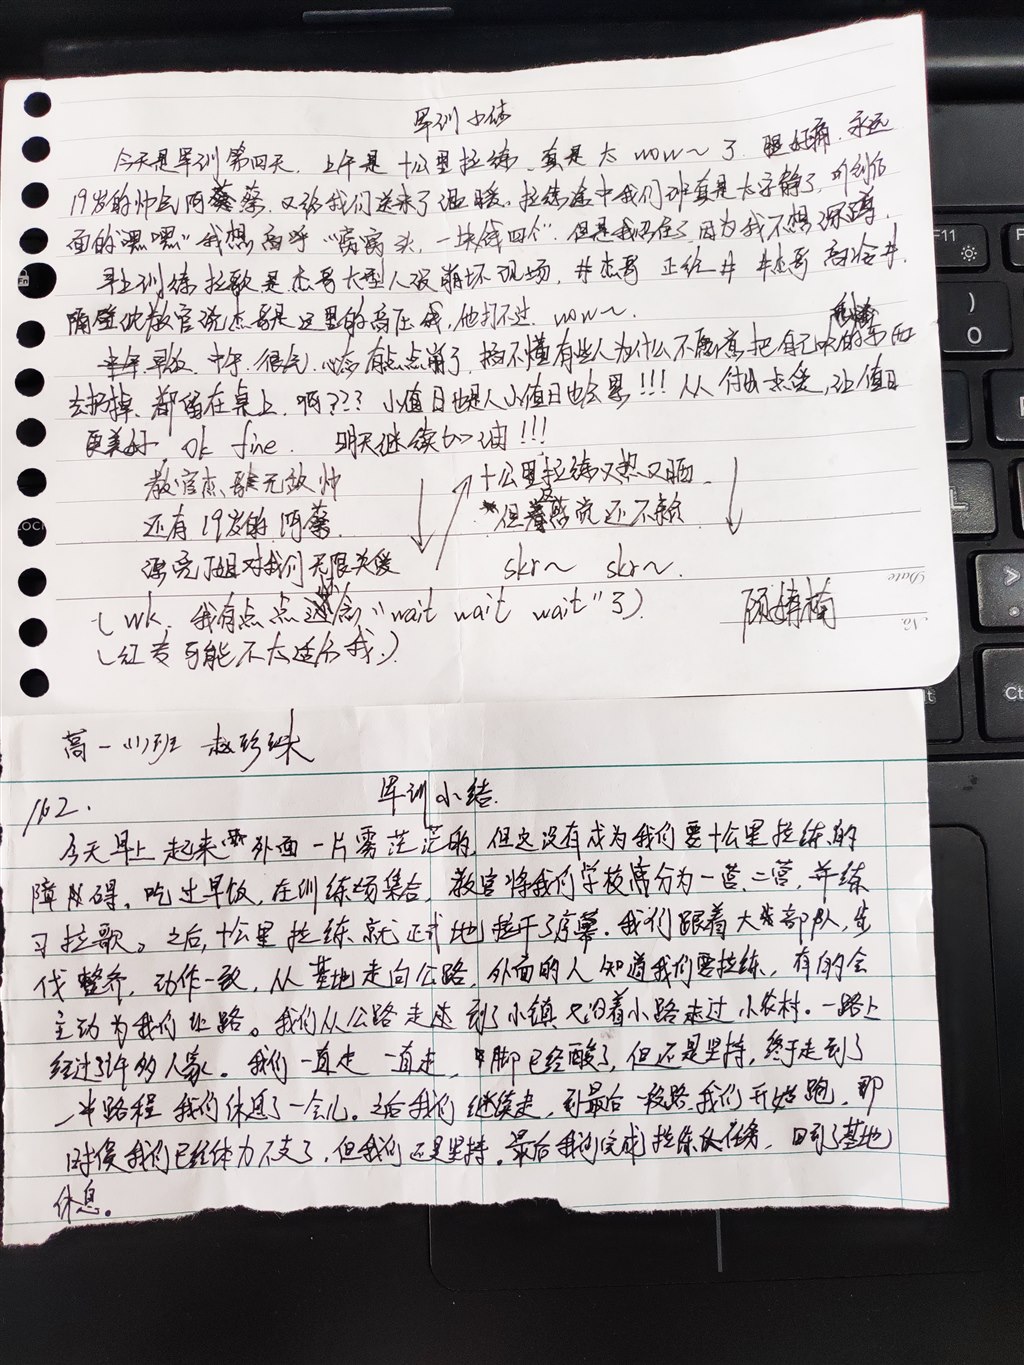 军训小结
今天是军训第四天，上午是十公里拉练，真是太wow~了，腿好痛，永远
19岁的帅气阿蔡蔡，又给我们送来了温暖。拉练途中我们班真是太安静了，听到后
面的"嘿嘿"我想高呼"，一块钱四个"，但是我忍住了因为我不想深蹲。
早上训练拉歌是杰哥大型人设崩坏现场，#杰哥 正经# #杰哥 高冷#.
隔壁说教官说杰哥是这里的高压线，他打不过. wow~.
早饭、中午、很气，心态有点点崩了，搞不懂有些人为什么不愿意把自己吃的东西
去扔掉、都留在桌上，啊？？？小值日也是人小值日也会累！！！人人付出点爱，让值日
更美好，ok fine. 明天继续加油！！！
教官杰哥无敌帅
还有19岁的阿蔡
源亮姐对我们无限关爱
十公里拉练又热又晒
但感觉还不赖
skr~ skr~.
(wk，我有点点想念"wait wait wait"了)
(红麦可能不太适合我.)
顾婧楠
Date
No.
高一(1)班 赵珍珠
162.
军训小结.
今天早上起来外面一片雾茫茫的，但也没有成为我们要十公里拉练的
障碍。吃过早饭，在训练场集合，教官将我们学校高分为一营、二营，并练
习拉歌。之后，十公里拉练就正式地拉开了序幕。我们跟着大部队，步
伐整齐，动作一致，从基地走向公路，外面的人知道我们要拉练，有的会
主动为我们让路。我们从公路走到了小镇又沿着小路走过小农村。一路上
经过了许多人家。我们一直走一直走，脚已经酸了，但还是坚持，终于走到了
一半路程我们休息了一会儿。之后我们继续走，到最后一段路我们开始跑，那
时候我们已经体力不支了，但我们还是坚持。最后我们完成拉练的任务，回到了基地
休息。
F11
)
0
L
>
Ctrl